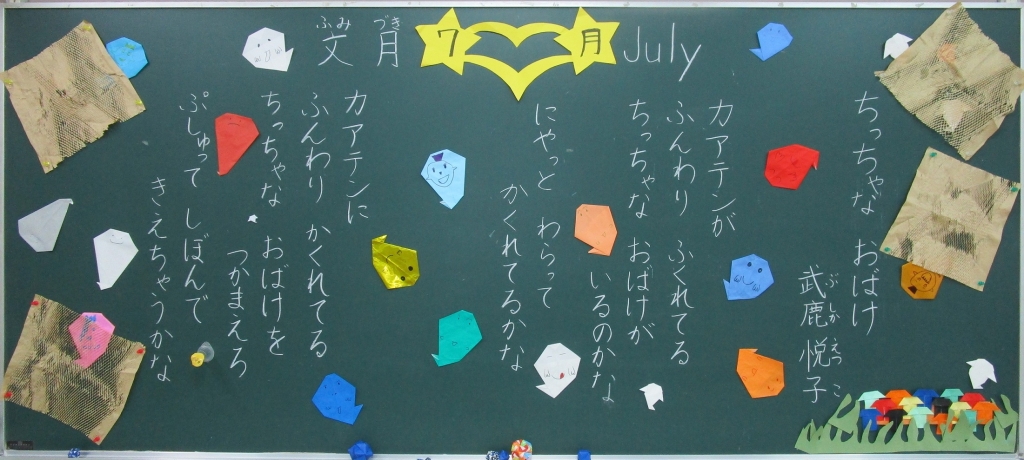 ふみ づき
文月 7月 July
ちっちゃな おばけ
ぶしか えつこ
武鹿 悦子
カアテンが
ふんわり ふくれてる
ちっちゃな おばけが
いるのかな
にやっと わらって
かくれてるかな
カアテンに
ふんわり かくれてる
ちっちゃな おばけを
つかまえろ
ぷしゅって しぼんで
きえちゃうかな